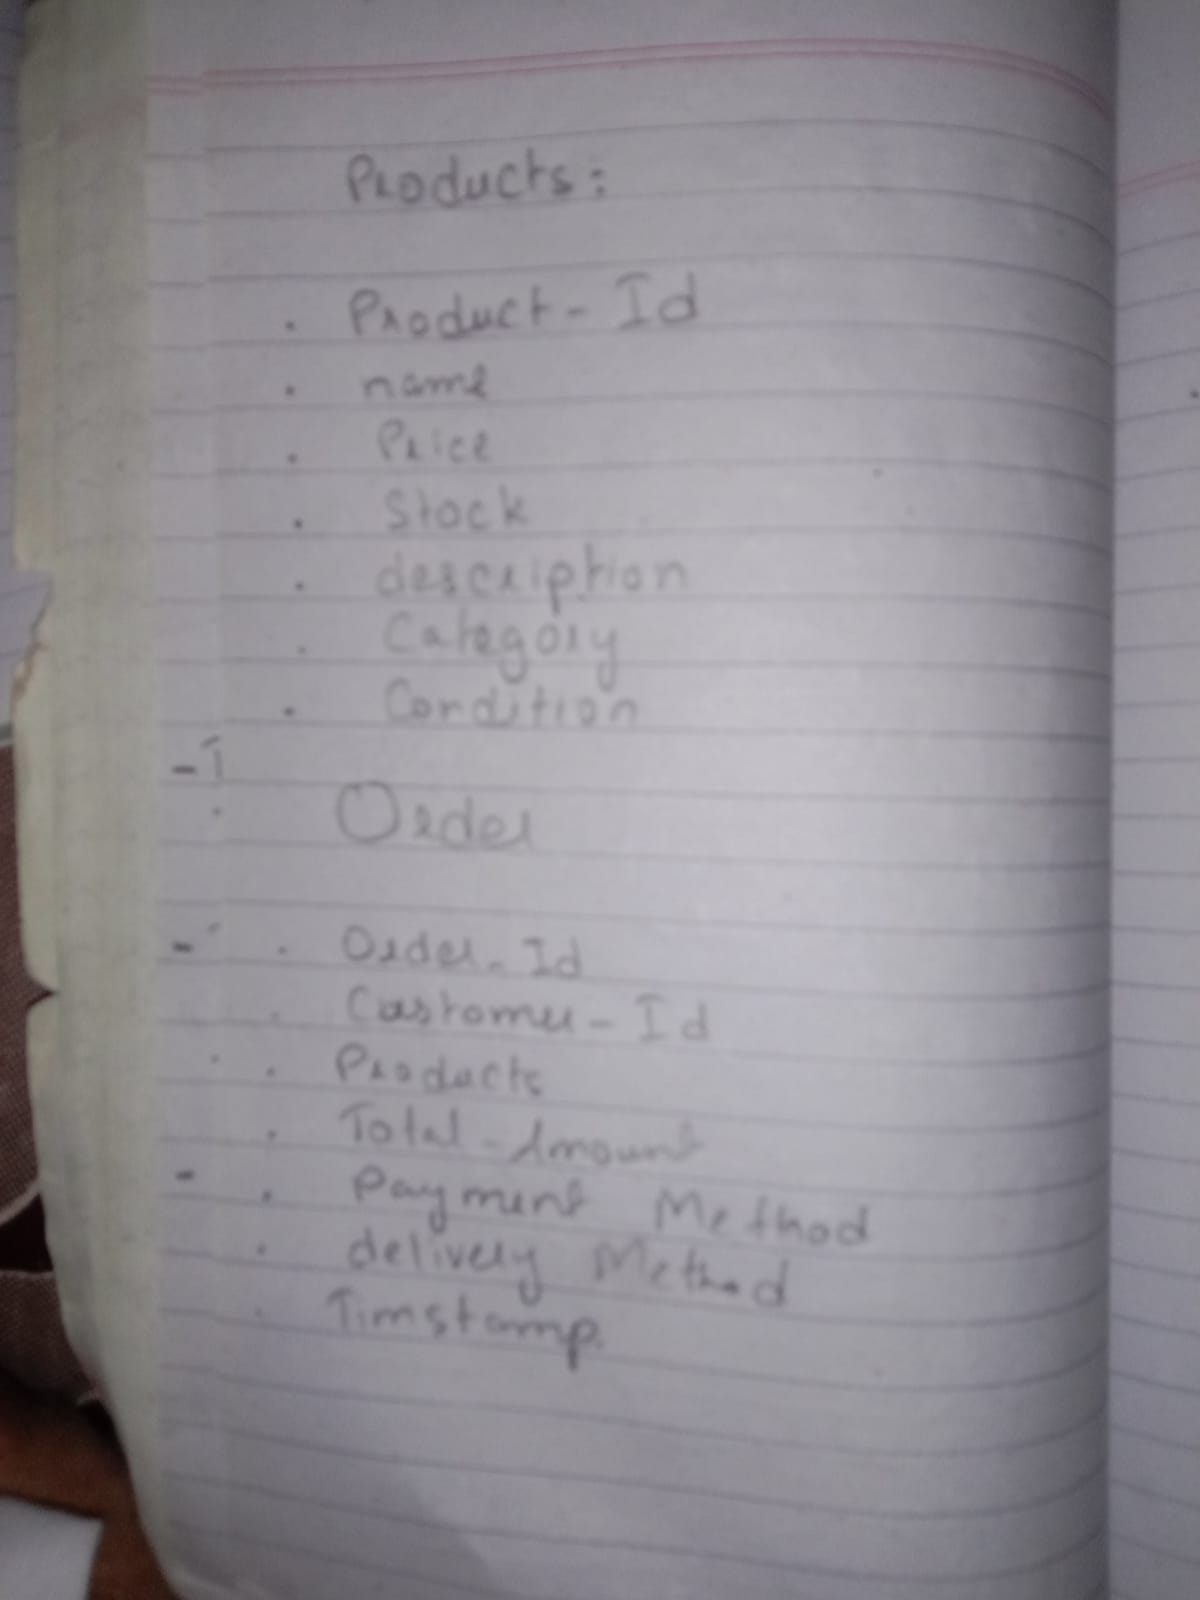 Products:
. Product - Id
. name
. Price
. Stock
. description
. Category
. Condition
Order
. Order - Id
. Customer - Id
. Products
. Total - Amount
. Payment Method
. delivery Method
. Timstamp.